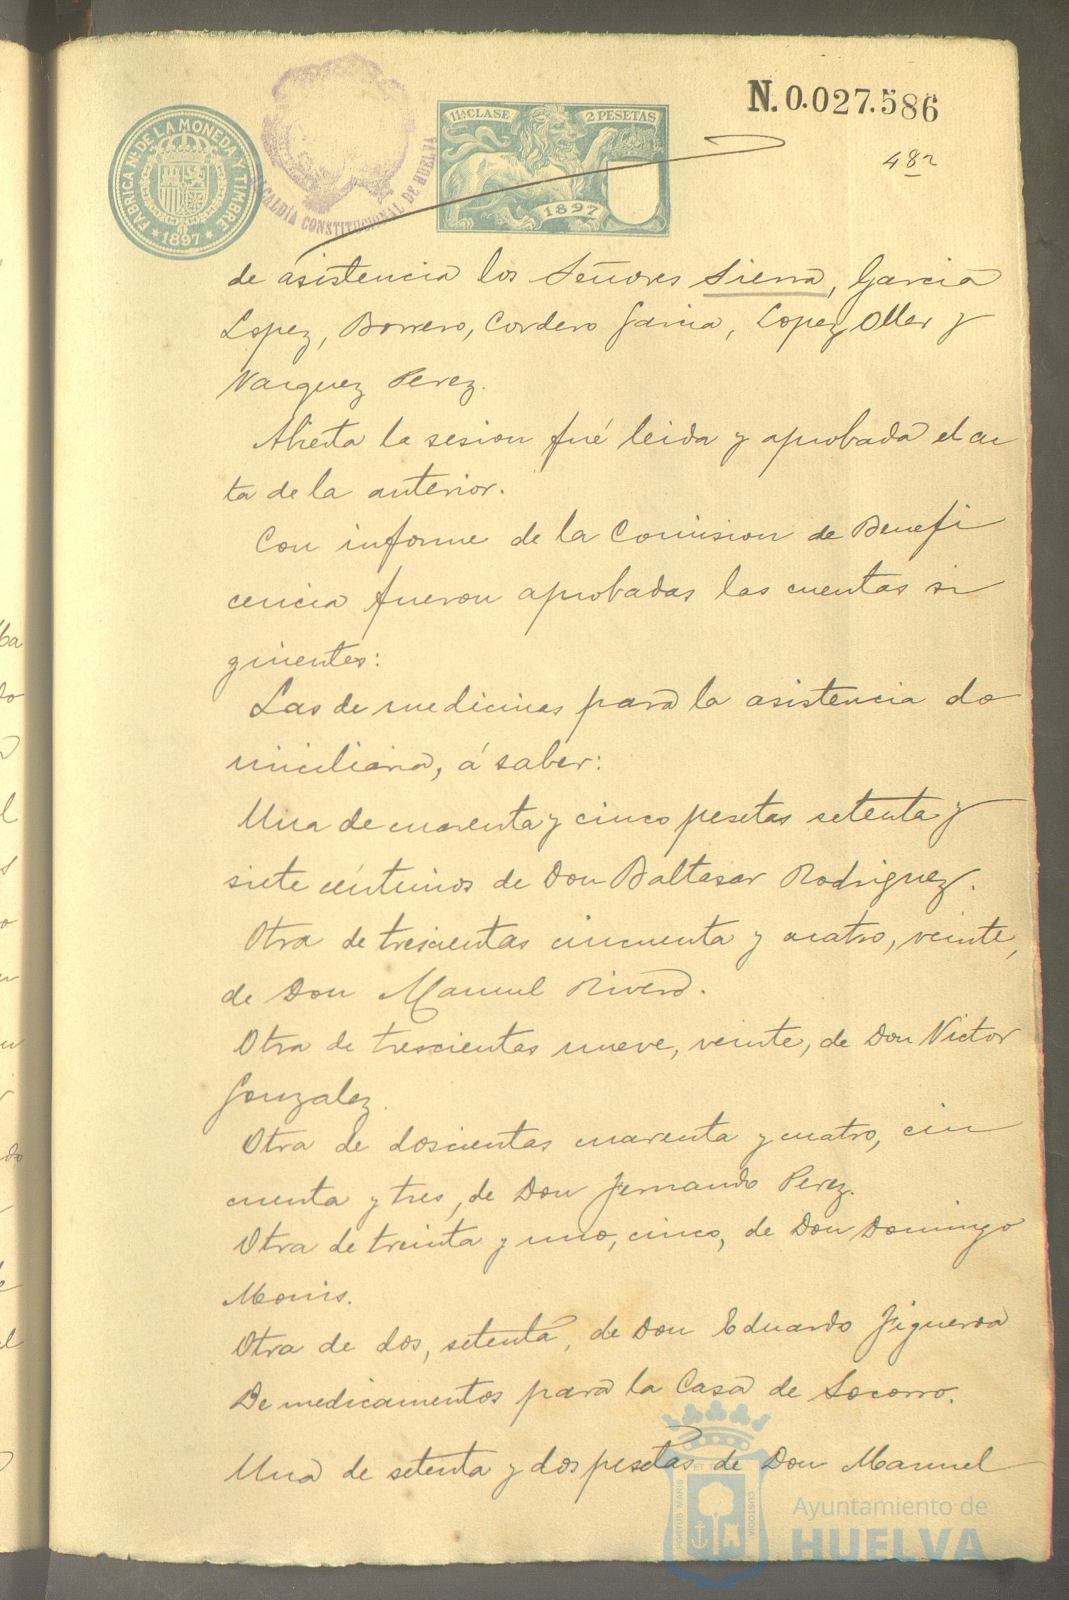 N. 0.027.586
11ª CLASE 2 PESETAS
1897
FABRICA N. DE LA MONEDA Y TIMBRE
* 1897 *
ALCALDÍA CONSTITUCIONAL DE HUELVA
48
de asistencia los Señores Sierra, Garcia
Lopez, Borrero, Cordero Garcia, Lopez Oller y
Vazquez Perez.
Abierta la sesion fué leida y aprobada el ac
ta de la anterior.
Con informe de la Comision de Benefi
cencia fueron aprobadas las cuentas si
guientes:
Las de medicinas para la asistencia do
miciliaria, á saber:
Una de cuarenta y cinco pesetas setenta y
siete céntimos de Don Baltasar Rodriguez.
Otra de trescientas cincuenta y cuatro, veinte,
de Don Manuel Rivero.
Otra de trescientas nueve, veinte, de Don Victor
Gonzalez.
Otra de doscientas cuarenta y cuatro, cin
cuenta y tres, de Don Fernando Perez.
Otra de treinta y uno, cinco, de Don Domingo
Monis.
Otra de dos, setenta, de Don Eduardo Figueroa
De medicamentos para la Casa de Socorro.
Una de setenta y dos pesetas de Don Manuel
PORTUS MARIS ET TERRAE CUSTODIA
Ayuntamiento de
HUELVA